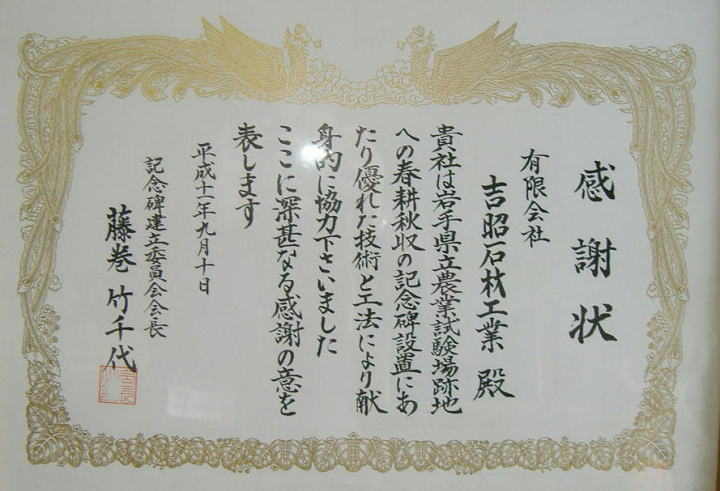 感謝状
有限会社
吉昭石材工業 殿
貴社は岩手県立農業試験場跡地
への春耕秋収の記念碑設置にあ
たり優れた技術と工法により献
身的に協力下さいました
ここに深甚なる感謝の意を
表します
平成十一年九月十日
記念碑建立委員会会長
藤巻竹千代